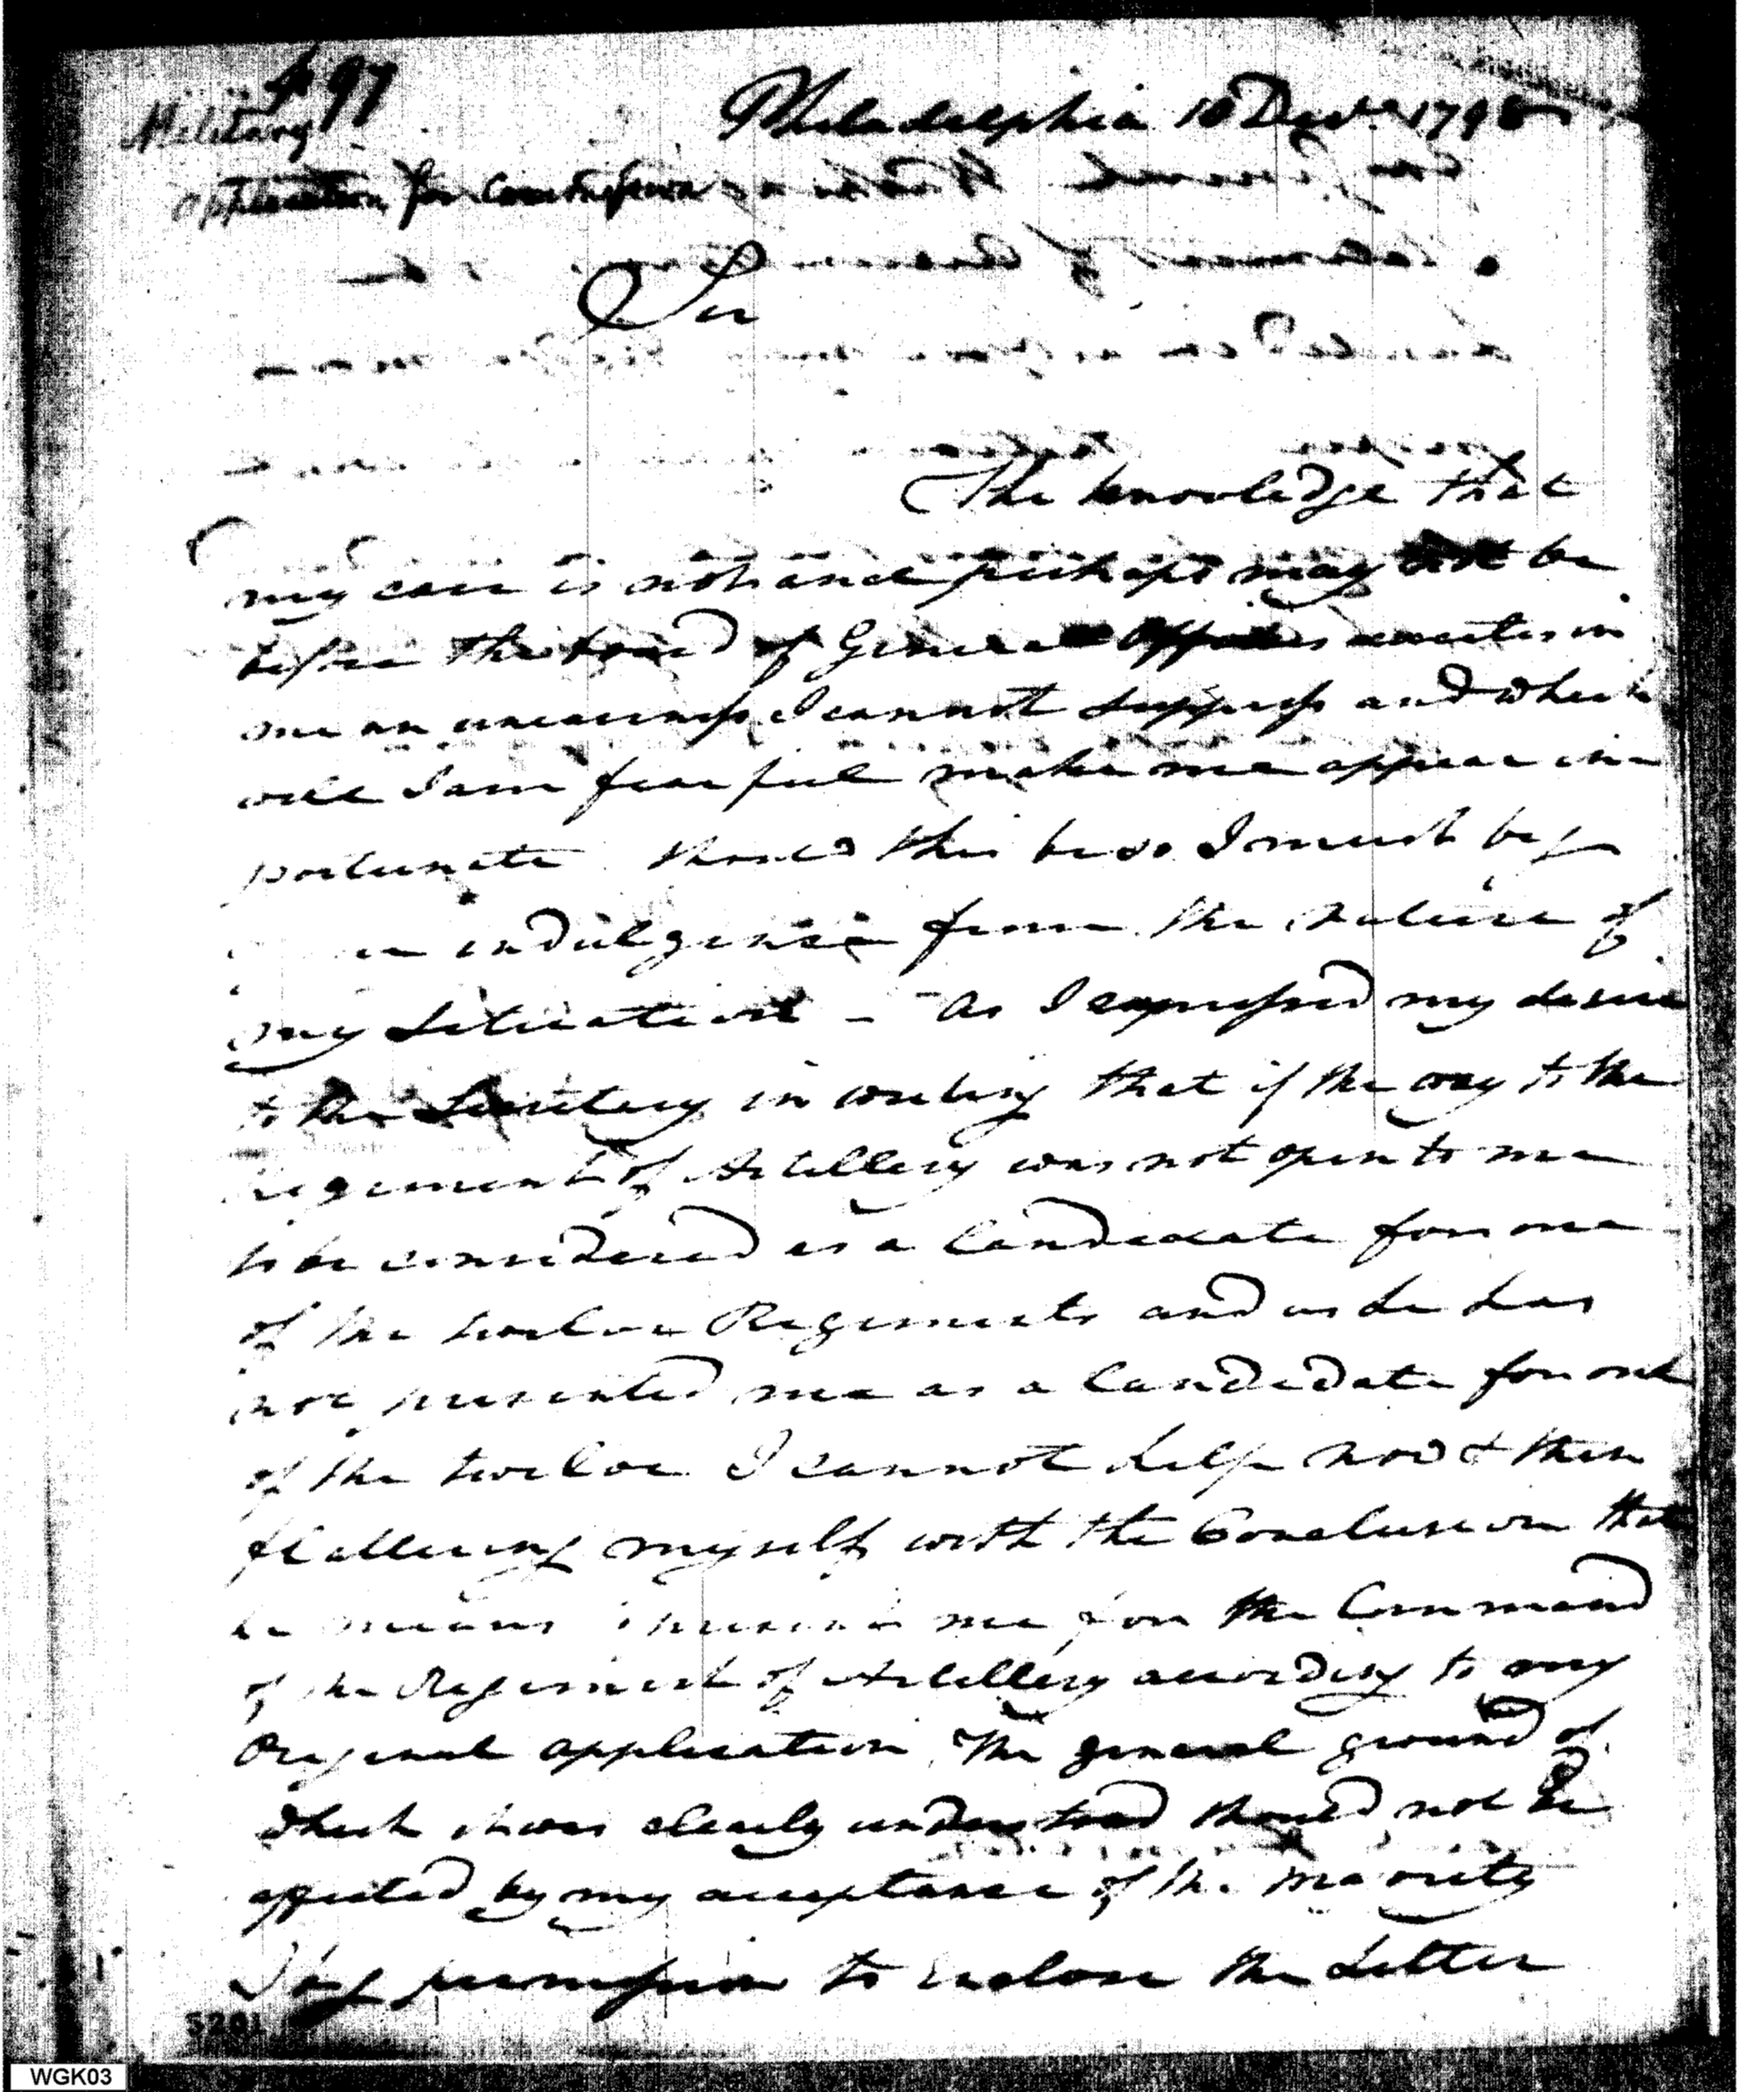 No 97
Military
application for Commissions
Philadelphia 10 Decr. 1798
Sir
The knowledge that
my case is not and perhaps may not be
before the board of General Officers excites in
me an uneasiness I cannot suppress and which
will I am fearful make me appear im-
portunate should this be so I must beg
an indulgence from the nature of
my Situation - As I expressed my desire
to the Secretary in writing that if the way to the
regiment of Artillery was not open to me
to be considered as a Candidate for one
of the twelve Regiments and as he has
not presented me as a Candidate for one
of the twelve I cannot help now & then
flattering myself with the Conclusion that
he means me for the Command
of the Regiment of Artillery according to my
Original application, The general ground of
which it was clearly understood should not be
affected by my acceptance of the Majority
I beg permission to enclose the Letter
5201
WGK03